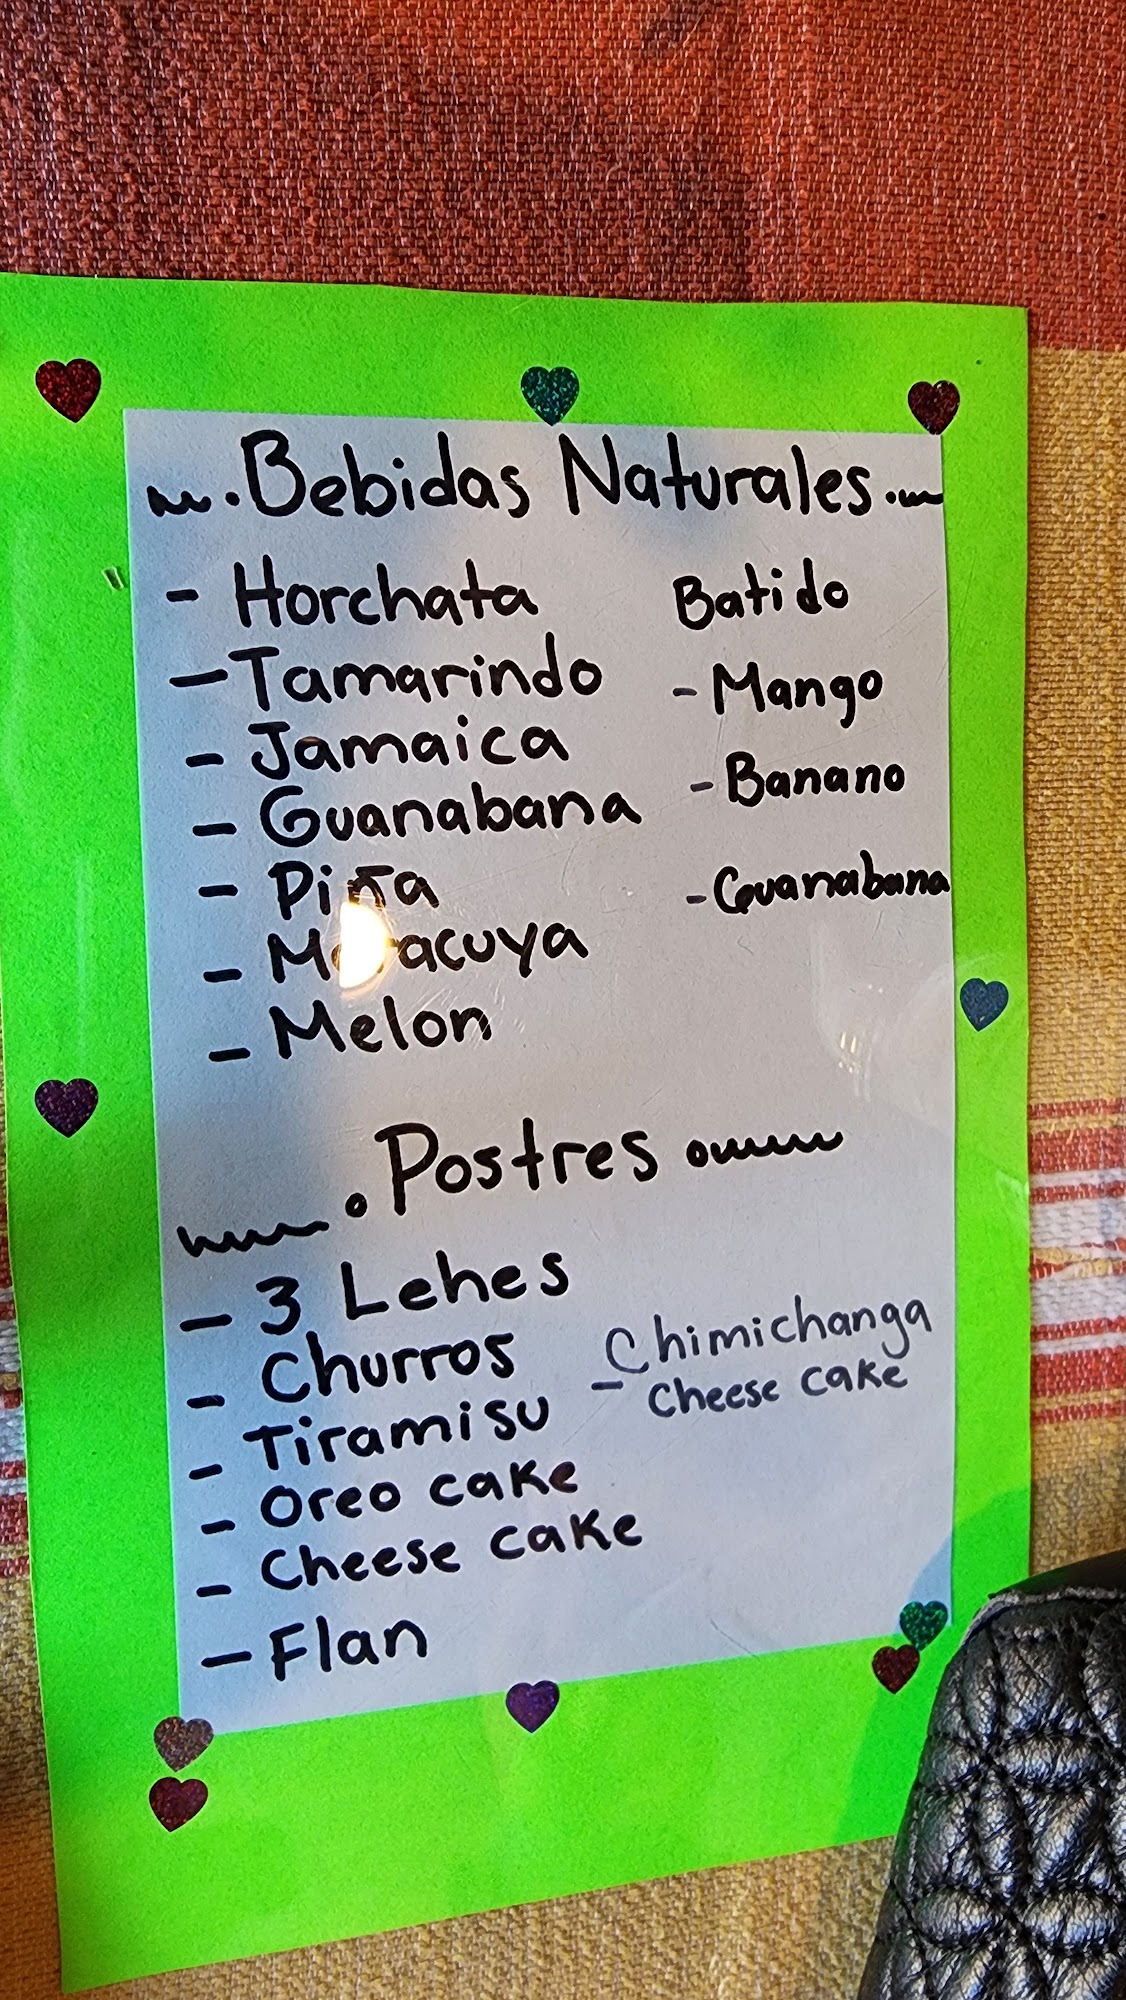 Bebidas Naturales
- Horchata
- Tamarindo
- Jamaica
- Guanabana
- Piña
- Maracuya
- Melon
Batido
- Mango
- Banano
- Guanabana
Postres
- 3 Lehes
- Churros
- Tiramisu
- Oreo cake
- Cheese cake
- Flan
- Chimichanga
Cheese cake